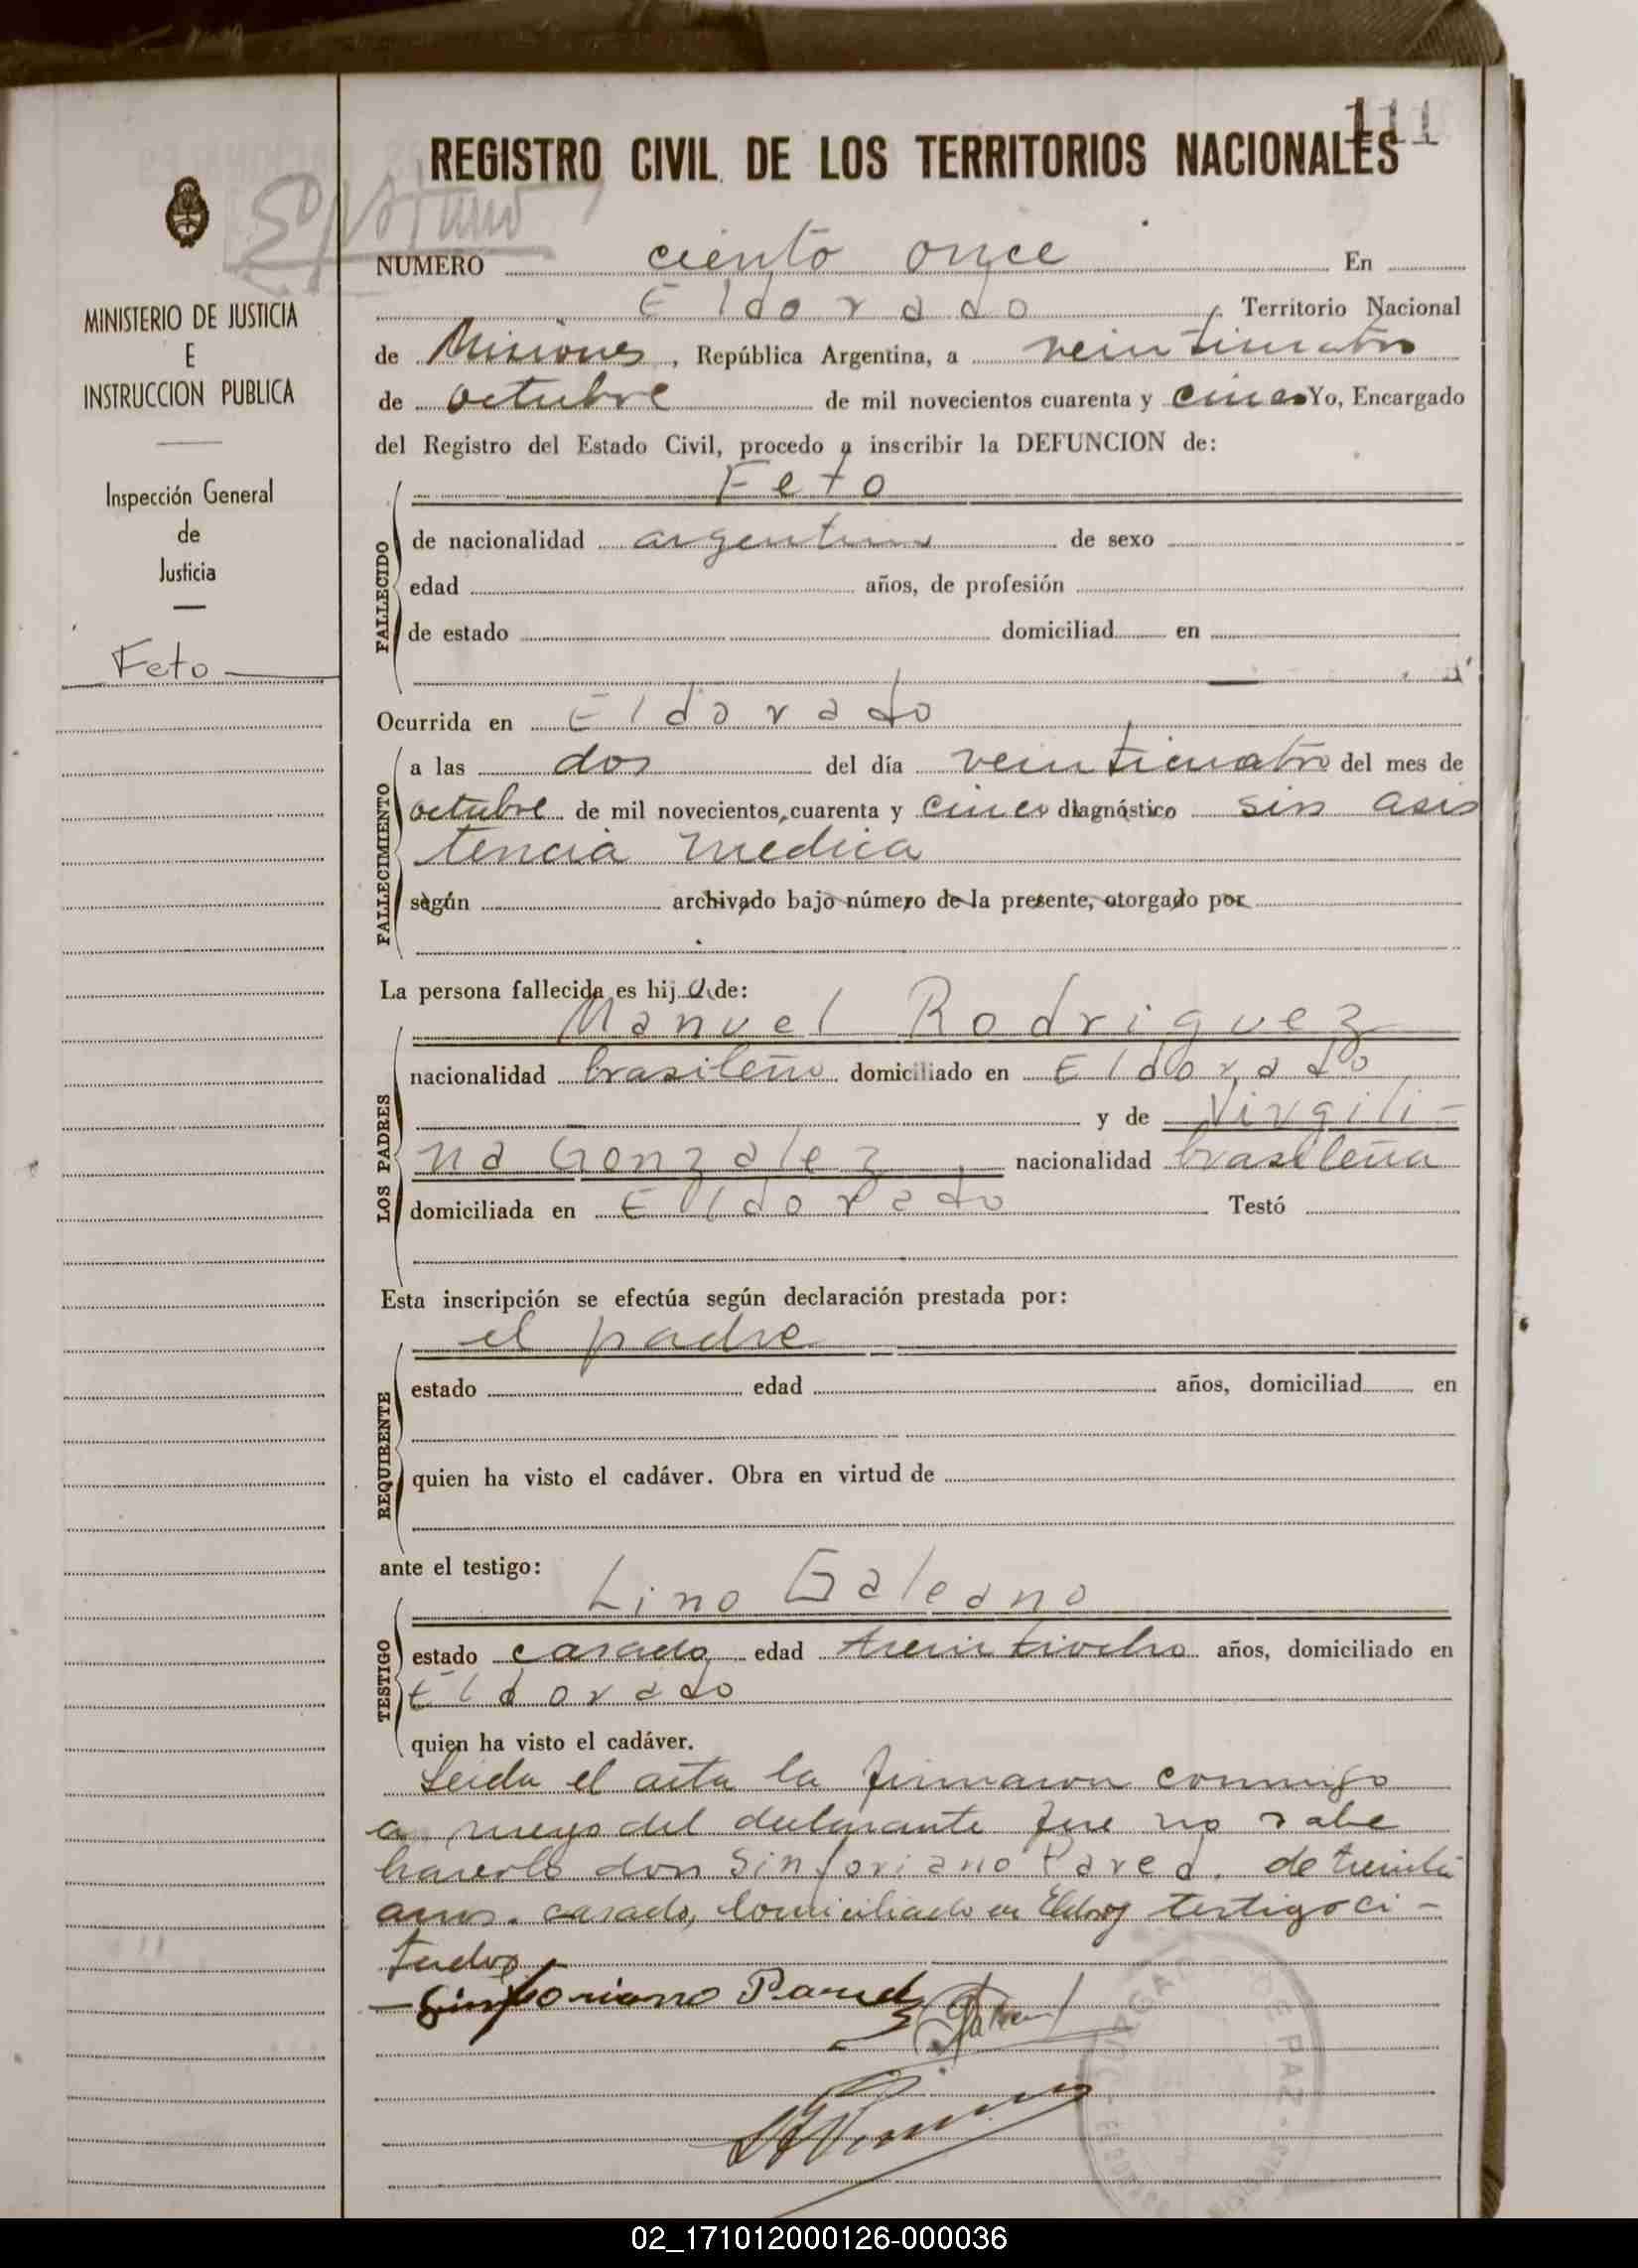 111
REGISTRO CIVIL DE LOS TERRITORIOS NACIONALES
MINISTERIO DE JUSTICIA
E
INSTRUCCION PUBLICA
Inspección General
de
Justicia
Feto
NUMERO ciento once En
Eldorado, Territorio Nacional
de Misiones, República Argentina, a veinticuatro
de octubre de mil novecientos cuarenta y cinco Yo, Encargado
del Registro del Estado Civil, procedo a inscribir la DEFUNCION de:
Feto
FALLECIDO
de nacionalidad argentino de sexo
edad años, de profesión
de estado domiciliad en
Ocurrida en Eldorado
FALLECIMIENTO
a las dos del día veinticuatro del mes de
octubre de mil novecientos cuarenta y cinco diagnóstico sin asis
tencia medica
según archivado bajo número de la presente, otorgado por
La persona fallecida es hijo de:
LOS PADRES
Manuel Rodriguez
nacionalidad brasileño domiciliado en Eldorado
y de Virgili-
na Gonzalez, nacionalidad brasileña
domiciliada en Eldorado Testó
Esta inscripción se efectúa según declaración prestada por:
REQUIRENTE
el padre
estado edad años, domiciliad en
quien ha visto el cadáver. Obra en virtud de
ante el testigo:
TESTIGO
Lino Galeano
estado casado edad treintiocho años, domiciliado en
Eldorado
quien ha visto el cadáver.
Leida el acta la firmaron conmigo
a ruego del declarante que no sabe
hacerlo don Sinforiano Pared. de treinta
anos. casado, domiciliado en testigo ci-
tados
Sinforiano Paredz
DE PAZ
02_171012000126-000036